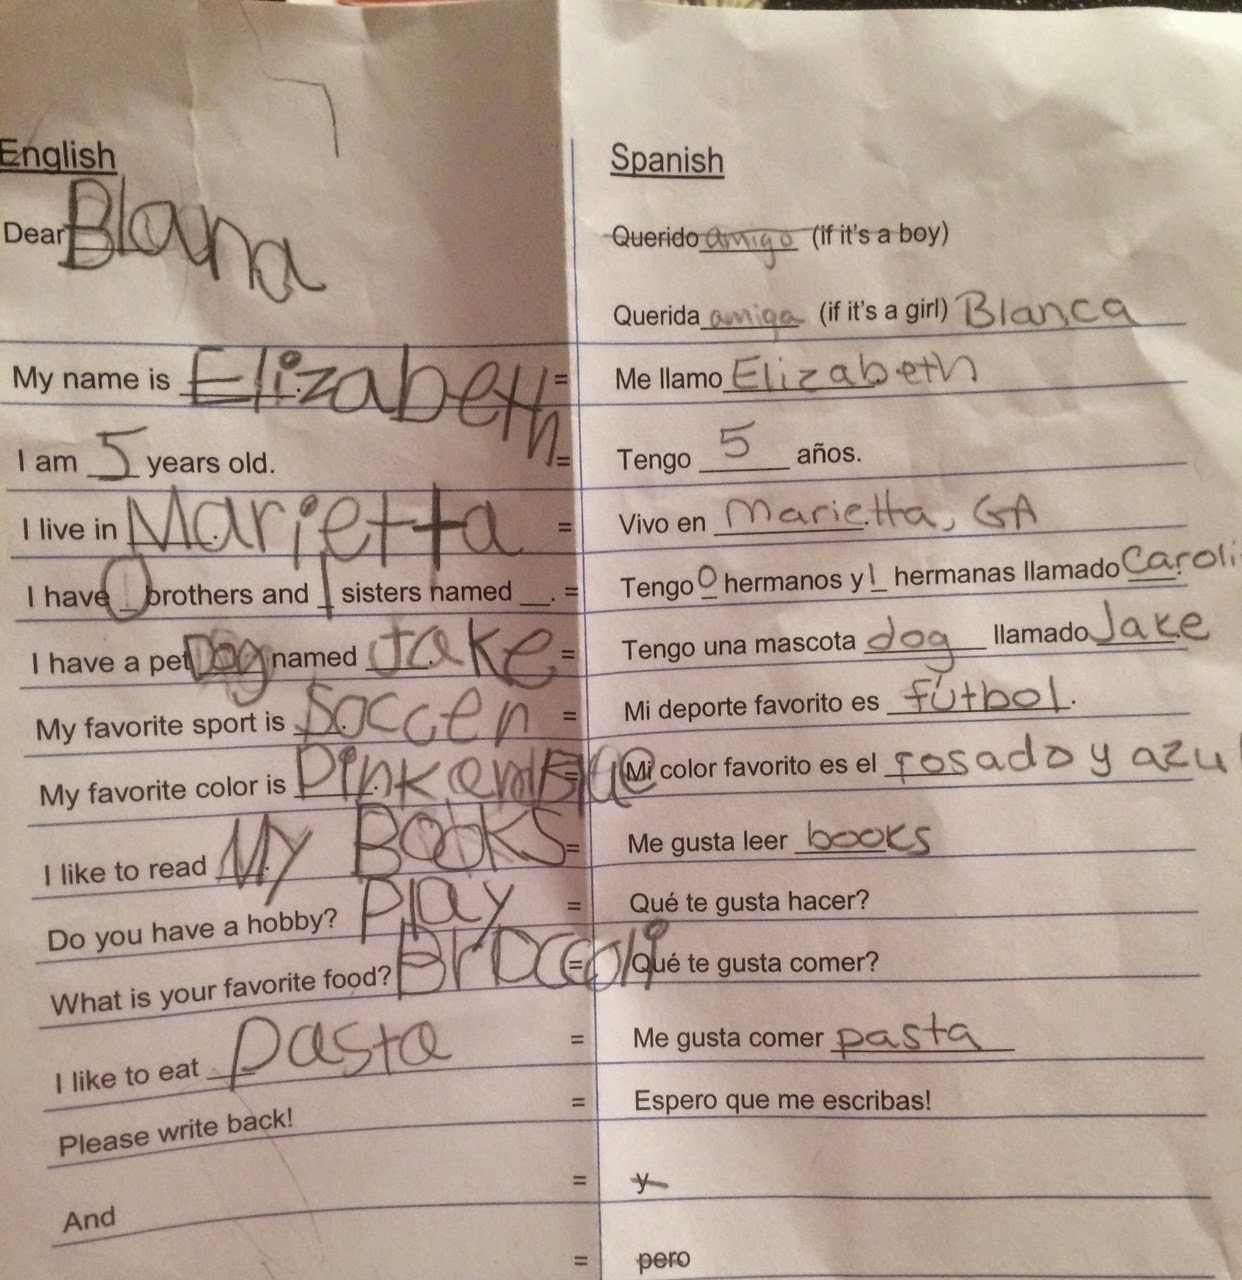 English
Dear Blana
My name is Elizabeth =
I am 5 years old. =
I live in Marietta =
I have 0 brothers and 1 sisters named __. =
I have a pet Dog named Jake =
My favorite sport is Soccer =
My favorite color is Pink and Blue =
I like to read My Books =
Do you have a hobby? Play =
What is your favorite food? Broccoli =
I like to eat pasta =
Please write back! =
And =
=
Spanish
Querido amigo (if it's a boy)
Querida amiga (if it's a girl) Blanca
Me llamo Elizabeth
Tengo 5 años.
Vivo en Marietta, GA
Tengo 0 hermanos y 1 hermanas llamado Caroli
Tengo una mascota dog llamado Jake
Mi deporte favorito es fútbol.
Mi color favorito es el rosado y azul
Me gusta leer books
Qué te gusta hacer?
Qué te gusta comer?
Me gusta comer pasta
Espero que me escribas!
y
pero